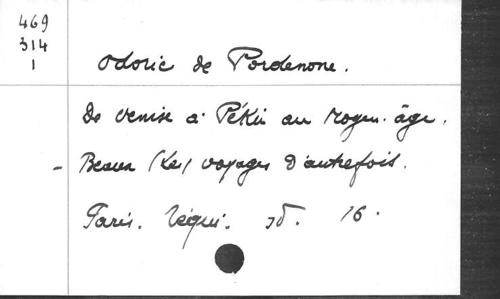 469
314
1
Odoric de Pordenone.
De Venise à Pékin au Moyen-âge.
- Beaux (Les) voyages d'autrefois.
Paris. Téqui. 16.